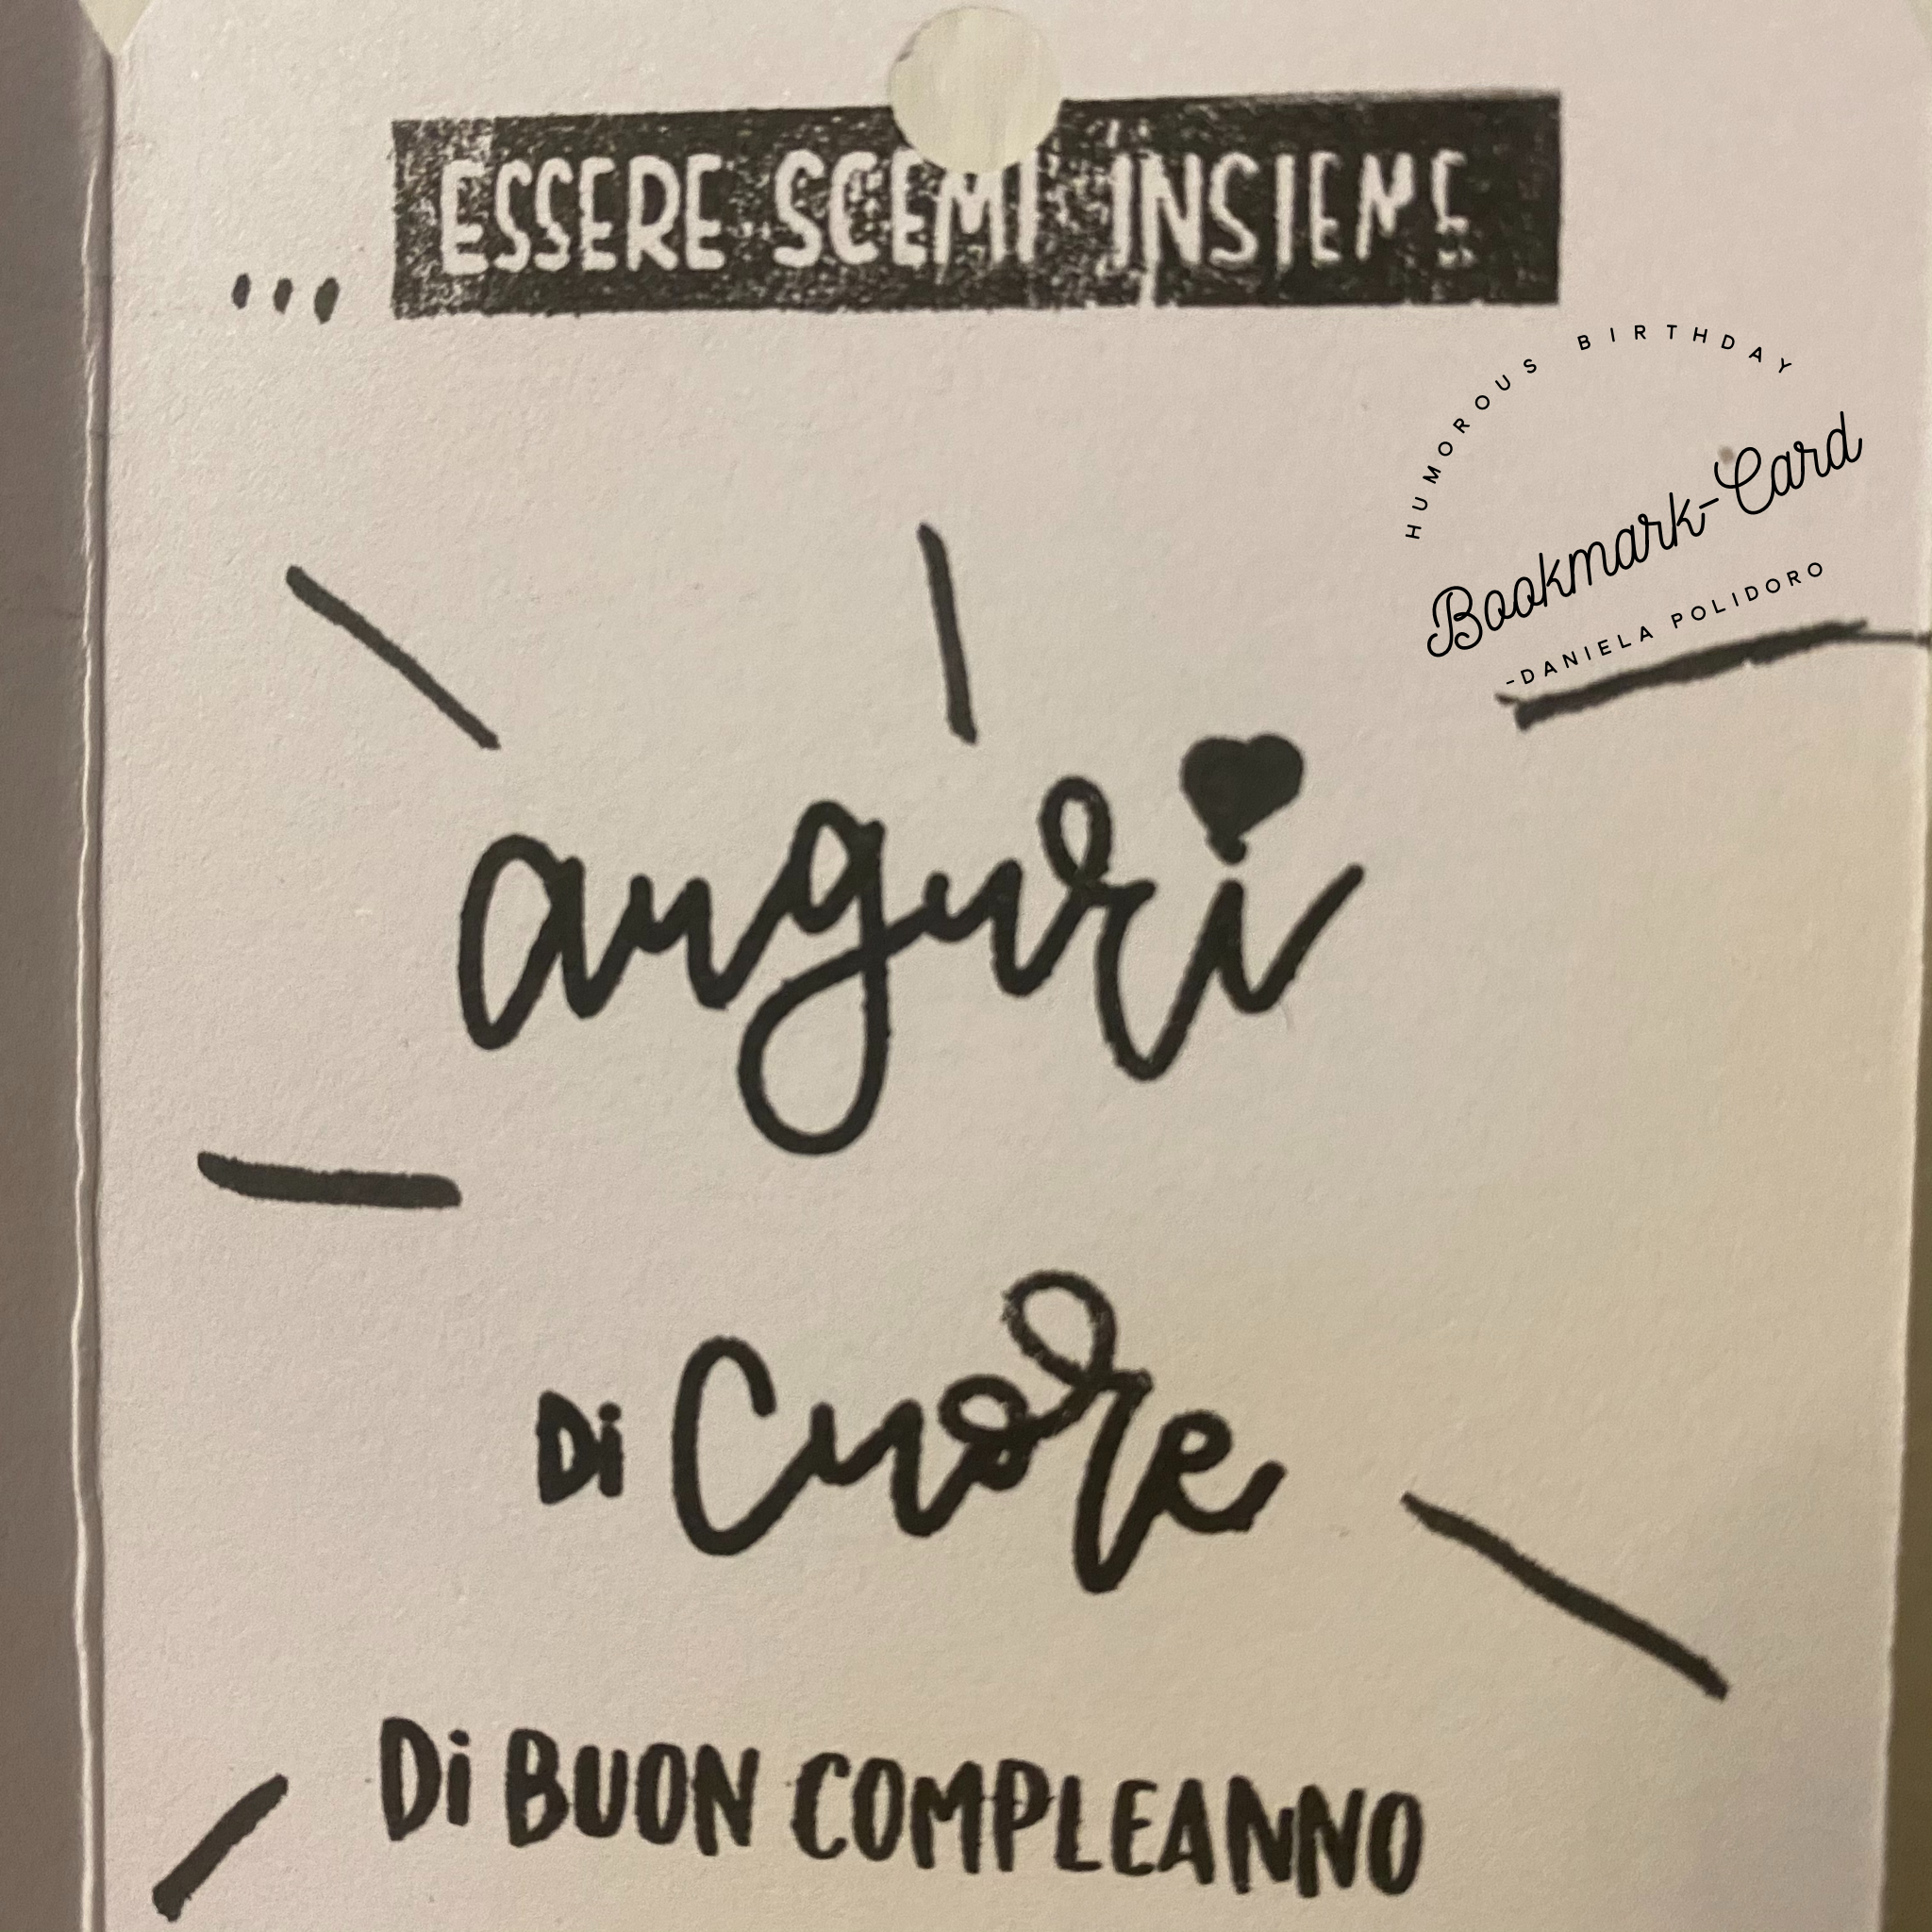 ESSERE SCEMI INSIEME
...
HUMOROUS BIRTHDAY
Bookmark-Card
-DANIELA POLIDORO
auguri
Di Cuore
Di BUON COMPLEANNO